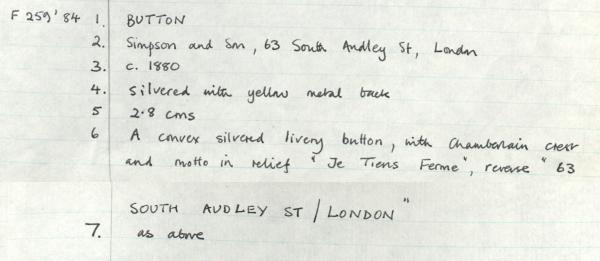 F 259'84 1. BUTTON
2. Simpson and Son, 63 South Audley St, London
3. c. 1880
4. Silvered with yellow metal back
5 2.8 cms
6 A convex silvered livery button, with Chamberlain crest
and motto in relief "Je Tiens Ferme", reverse "63
SOUTH AUDLEY ST / LONDON"
7. as above